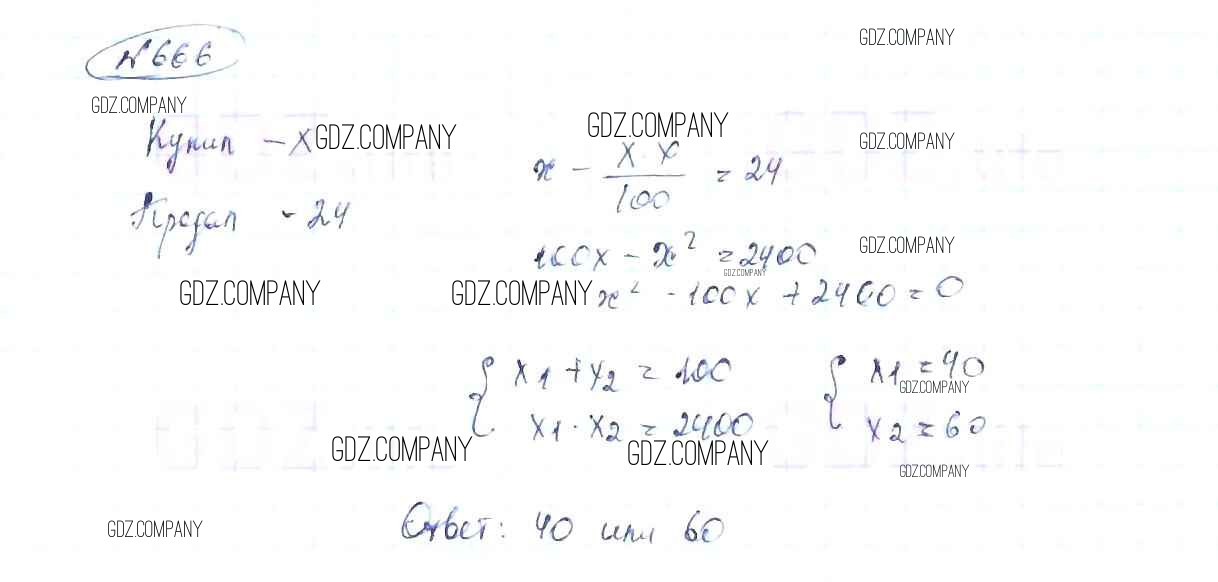 №666
GDZ.COMPANY
GDZ.COMPANY
Купил - x GDZ.COMPANY
GDZ.COMPANY
GDZ.COMPANY
x - x·x/100 = 24
Продал - 24
100x - x² = 2400
GDZ.COMPANY
GDZ.COMPANY
GDZ.COMPANY
GDZ.COMPANY
x² - 100x + 2400 = 0
{ x1 + x2 = 100
x1 · x2 = 2400
{ x1 = 40
GDZ.COMPANY
x2 = 60
GDZ.COMPANY
GDZ.COMPANY
GDZ.COMPANY
GDZ.COMPANY
Ответ: 40 или 60